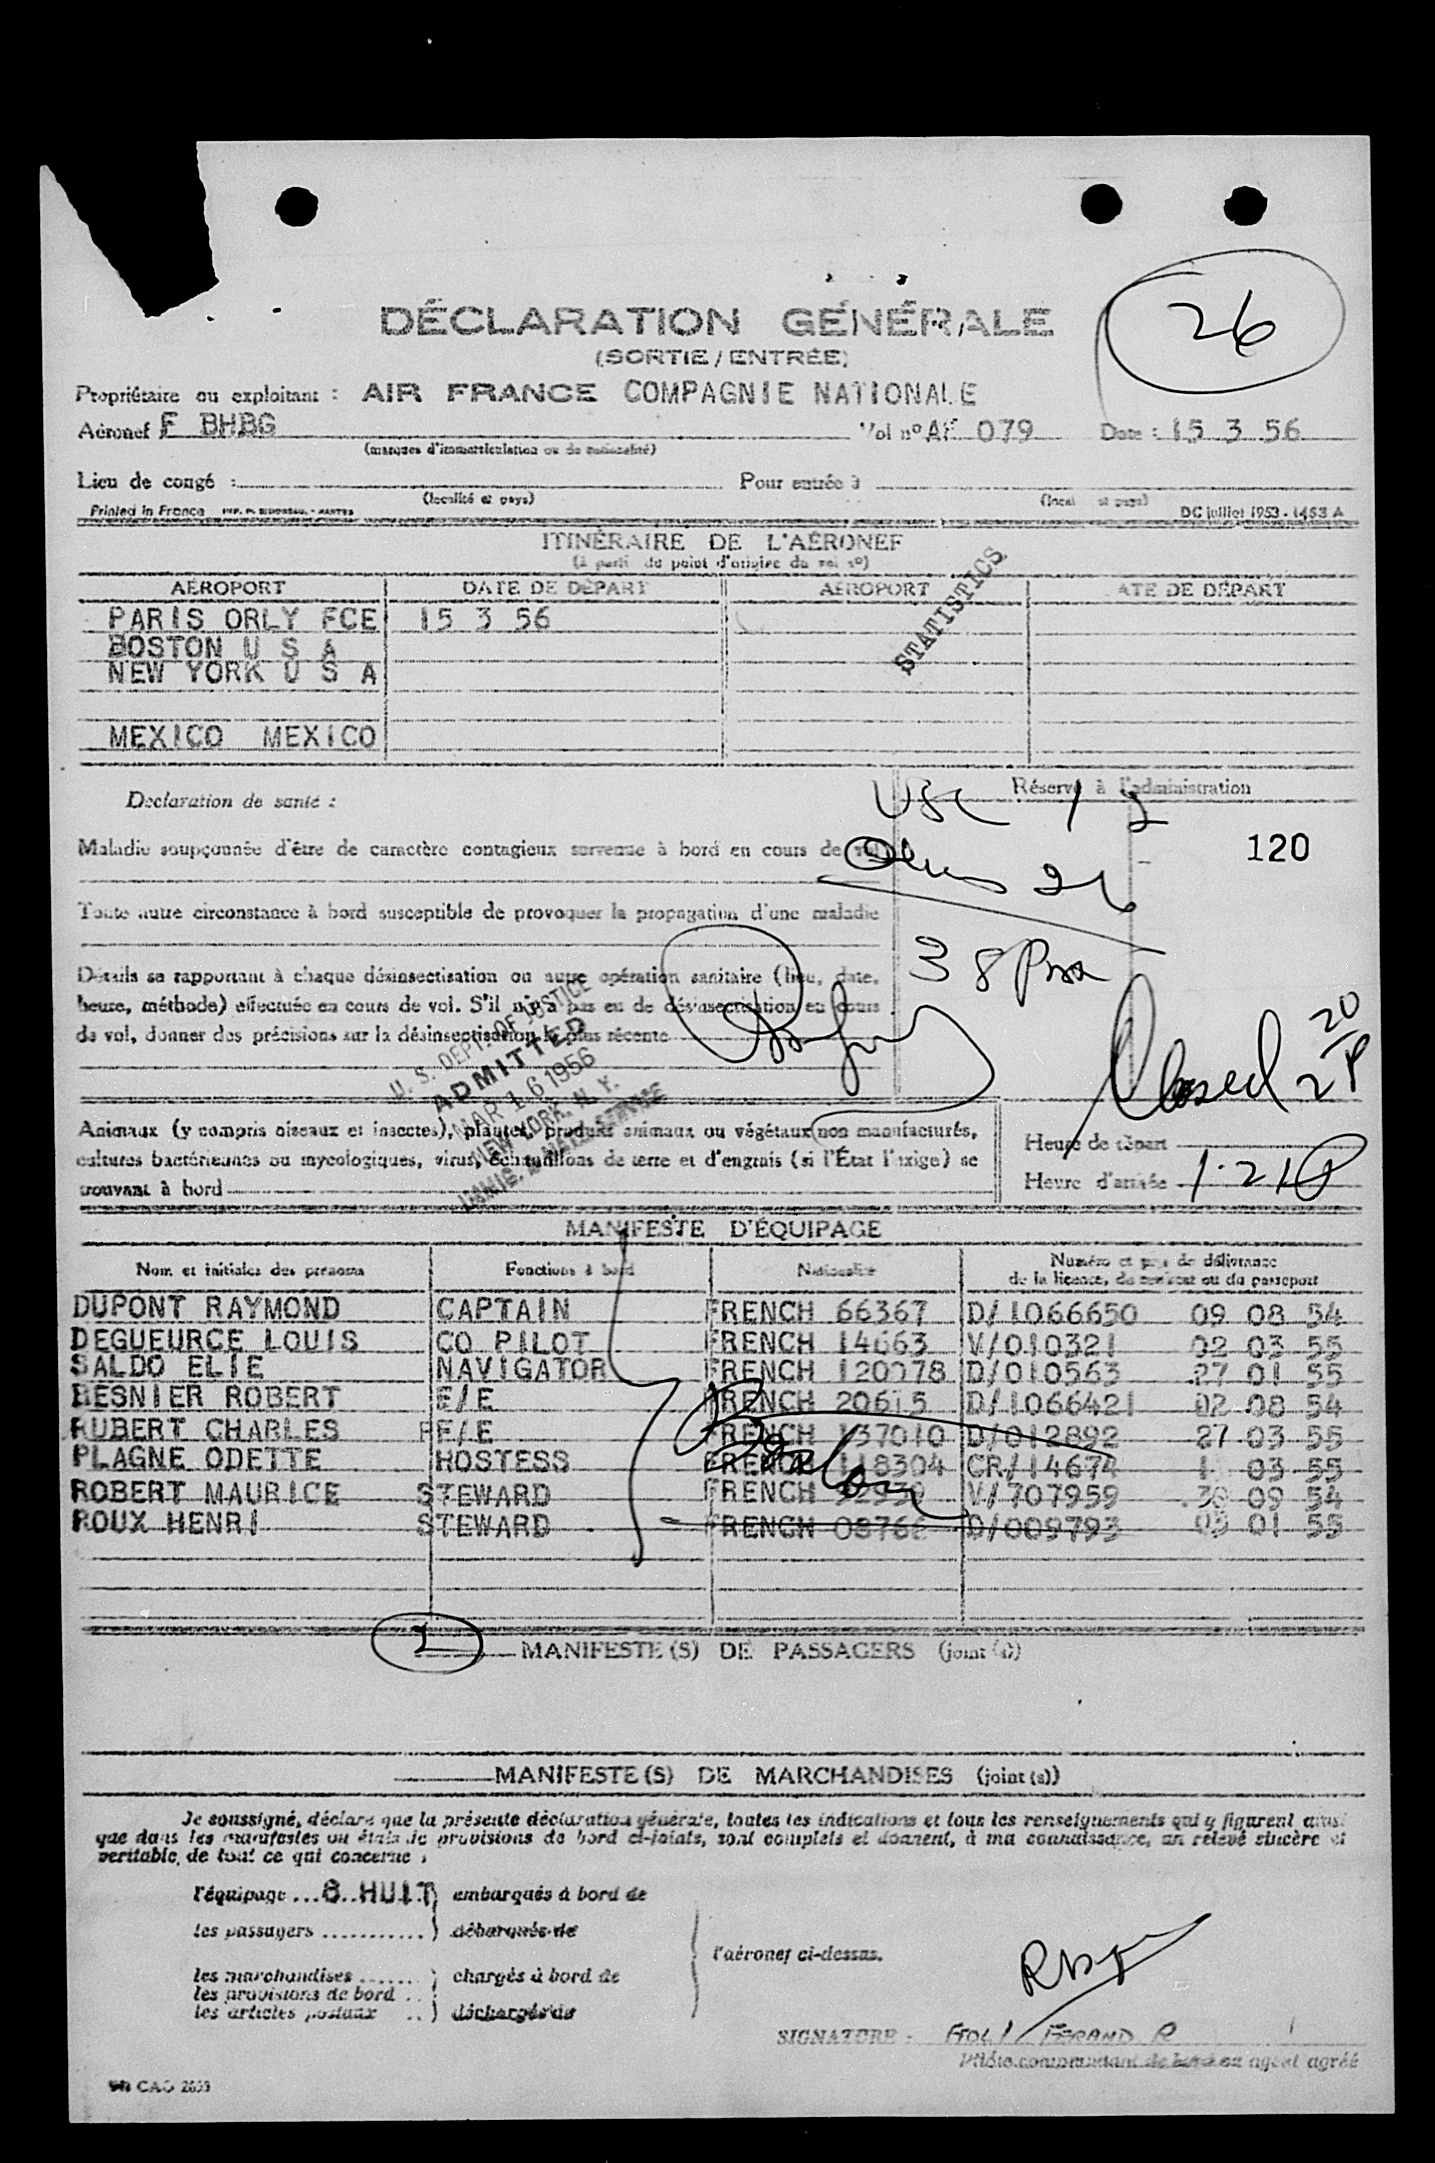 26
DÉCLARATION GÉNÉRALE
(SORTIE / ENTRÉE)
Propriétaire ou exploitant : AIR FRANCE COMPAGNIE NATIONALE
Aéronef F BHBG Vol nº AF 079 Date : 15 3 56
(marques d'immatriculation ou de nationalité)
Lieu de congé : Pour entrée à
(localité et pays) (local et pays)
Printed in France DC juillet 1953 - 1453 A
ITINÉRAIRE DE L'AÉRONEF
(à partir du point d'origine du vol nº)
AÉROPORT DATE DE DÉPART AÉROPORT ATE DE DÉPART
STATISTICS
PARIS ORLY FCE 15 3 56
BOSTON U S A
NEW YORK U S A
MEXICO MEXICO
Déclaration de santé :
Réservé à l'administration
USC 1 2
120
Maladie soupçonnée d'être de caractère contagieux survenue à bord en cours de vol
Toute autre circonstance à bord susceptible de provoquer la propagation d'une maladie
38
Détails se rapportant à chaque désinsectisation ou autre opération sanitaire (lieu, date,
heure, méthode) effectuée en cours de vol. S'il n'y a pas eu de désinsectisation en cours
de vol, donner des précisions sur la désinsectisation la plus récente
U. S. DEPT. OF JUSTICE
ADMITTED
MAR 16 1956
NEW YORK, N. Y.
IMMIG. & NATZ. SERVICE
Closed 220P
Animaux (y compris oiseaux et insectes), plantes, produits animaux ou végétaux non manufacturés,
cultures bactériennes ou mycologiques, virus, échantillons de terre et d'engrais (si l'État l'exige) se
trouvant à bord
Heure de départ
Heure d'arrivée 1:21P
MANIFESTE D'ÉQUIPAGE
Nom et initiales des prénoms Fonctions à bord Nationalité Numéro et pays de délivrance
de la licence, du certificat ou du passeport
DUPONT RAYMOND CAPTAIN FRENCH 66367 D/1066650 09 08 54
DEGUEURCE LOUIS CO PILOT FRENCH 14663 V/010321 02 03 55
SALDO ELIE NAVIGATOR FRENCH 120078 D/010563 27 01 55
BESNIER ROBERT E/E FRENCH 20615 D/1066421 02 08 54
RUBERT CHARLES FE/E FRENCH 137010 D/012892 27 03 55
PLAGNE ODETTE HOSTESS FRENCH 118304 CR/14674 03 55
ROBERT MAURICE STEWARD FRENCH V/707959 30 09 54
ROUX HENRI STEWARD FRENCH 08766 D/009793 03 01 55
2 MANIFESTE(S) DE PASSAGERS (joint(s))
MANIFESTE(S) DE MARCHANDISES (joint(s))
Je soussigné, déclare que la présente déclaration générale, toutes les indications et tous les renseignements qui y figurent ainsi
que dans les manifestes ou états de provisions de bord ci-joints, sont complets et donnent, à ma connaissance, un relevé sincère et
véritable, de tout ce qui concerne :
l'équipage ... 8 HUIT ) embarqués à bord de
les passagers ........... ) débarqués de
l'aéronef ci-dessus.
les marchandises ...... ) chargés à bord de
les provisions de bord ..
les articles postaux .. ) déchargés de
SIGNATURE :
Pilote commandant de bord ou agent agréé
CAO 2633